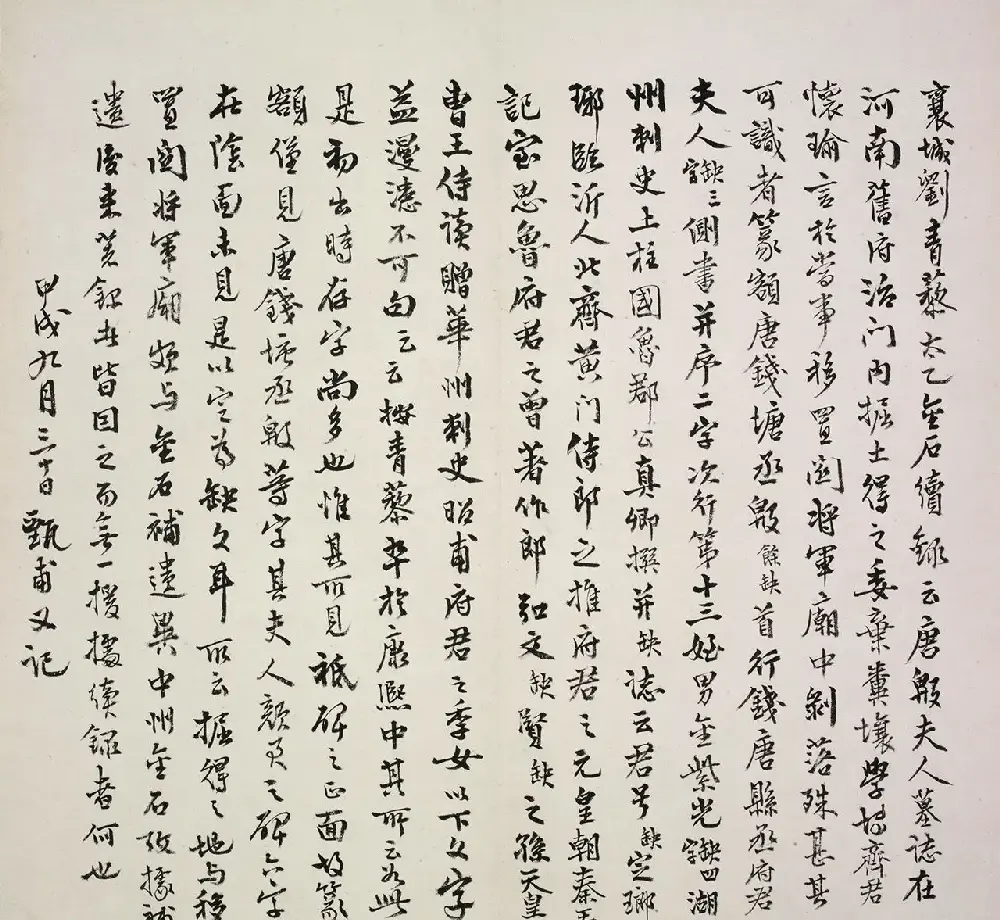 襄城劉青藜太乙金石續錄云唐殷夫人墓誌在
河南舊府治门内掘土得之委棄糞壤學博齊君
懷瑜言於當事移置関将軍廟中剝落殊甚其
可識者篆額唐錢塘丞殷餘缺首行錢唐縣丞府君
夫人缺三字側書并序二字次行第十三姪男金紫光缺四字湖
州刺史上柱國魯郡公真卿撰并缺誌云君号缺字定瑯
琊臨沂人北齊黄门侍郎之推府君之元皇朝秦王
記室思魯府君之曾著作郎弘文缺賢缺之孫天皇
曹王侍读贈華州刺史昭甫府君之季女以下文字
益漫漶不可句云云按青藜卒於康熙中其所云若此
是初出時存字尚多也惟其所見祗碑之正面故篆
額僅見唐錢塘丞殷等字其夫人顔君之碑六字
在陰面未見是以定為缺文耳所云掘得之地与移
置関将軍廟頗与金石補遺異中州金石攷據補
遺後来著錄者皆因之而無一援據續錄者何也
甲戌九月三十日甄甫又记